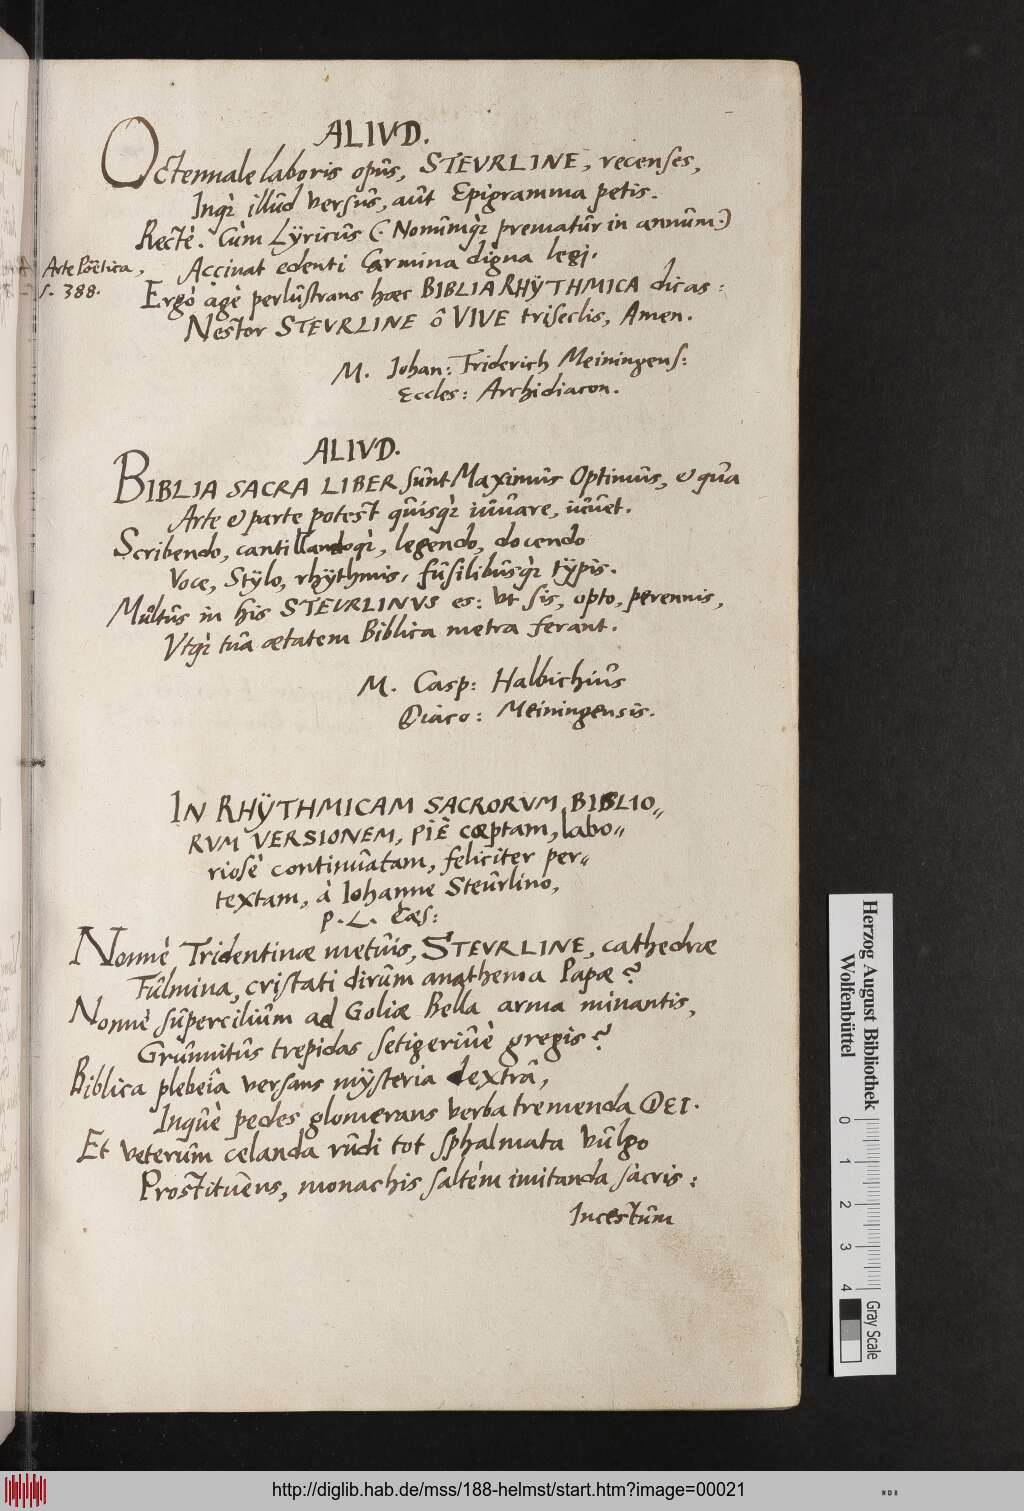 ALIVD.
Octennale laboris opus, STEVRLINE, recenses,
Inq; illud versus, aut Epigramma petis.
Rectè. Cùm Lÿricus (: Nonumq; prematur in annum:)
Arte Poëtica,
Accinat edenti Carmina digna legi.
s. 388.
Ergò agè perlustrans haec BIBLIA RHŸTHMICA dicas:
Nestor STEVRLINE ô VIVE triseclis, Amen.
M. Johan: Friderich Meiningens:
Eccles: Archidiacon.
ALIVD.
BIBLIA SACRA LIBER sunt Maximus Optimus, & qua
Arte & parte potest quisq; iuuare, iuuet.
Scribendo, cantillandoq;, legendo, docendo
Voce, Stÿlo, rhÿthmis, fusilibusq; tÿpis.
Multus in his STEVRLINVS es: Vt sis, opto, perennis,
Vtq; tua aetatem Biblica metra ferant.
M. Casp: Halbichius
Diaco: Meiningensis.
IN RHŸTHMICAM SACRORVM BIBLIO„
RVM VERSIONEM, PIÈ cœptam, labo„
riosè continuatam, feliciter per„
textam, à Johanne Steurlino,
P. L. Cæs:
Nonnè Tridentinæ metuis, STEVRLINE, cathedræ
Fulmina, cristati dirum anathema Papæ?
Nonnè supercilium ad Goliæ Bella arma minantis,
Grunnitus trepidas setigeriuè gregis?
Biblica plebeiâ versans mÿsteria dextrâ,
Inquè pedes glomerans verba tremenda DEI.
Et veterum celanda rudi tot sphalmata vulgo
Prostituens, monachis saltem imitanda sacris:
Incestum
Herzog August Bibliothek
Wolfenbüttel
0 1 2 3 4
Gray Scale
http://diglib.hab.de/mss/188-helmst/start.htm?image=00021